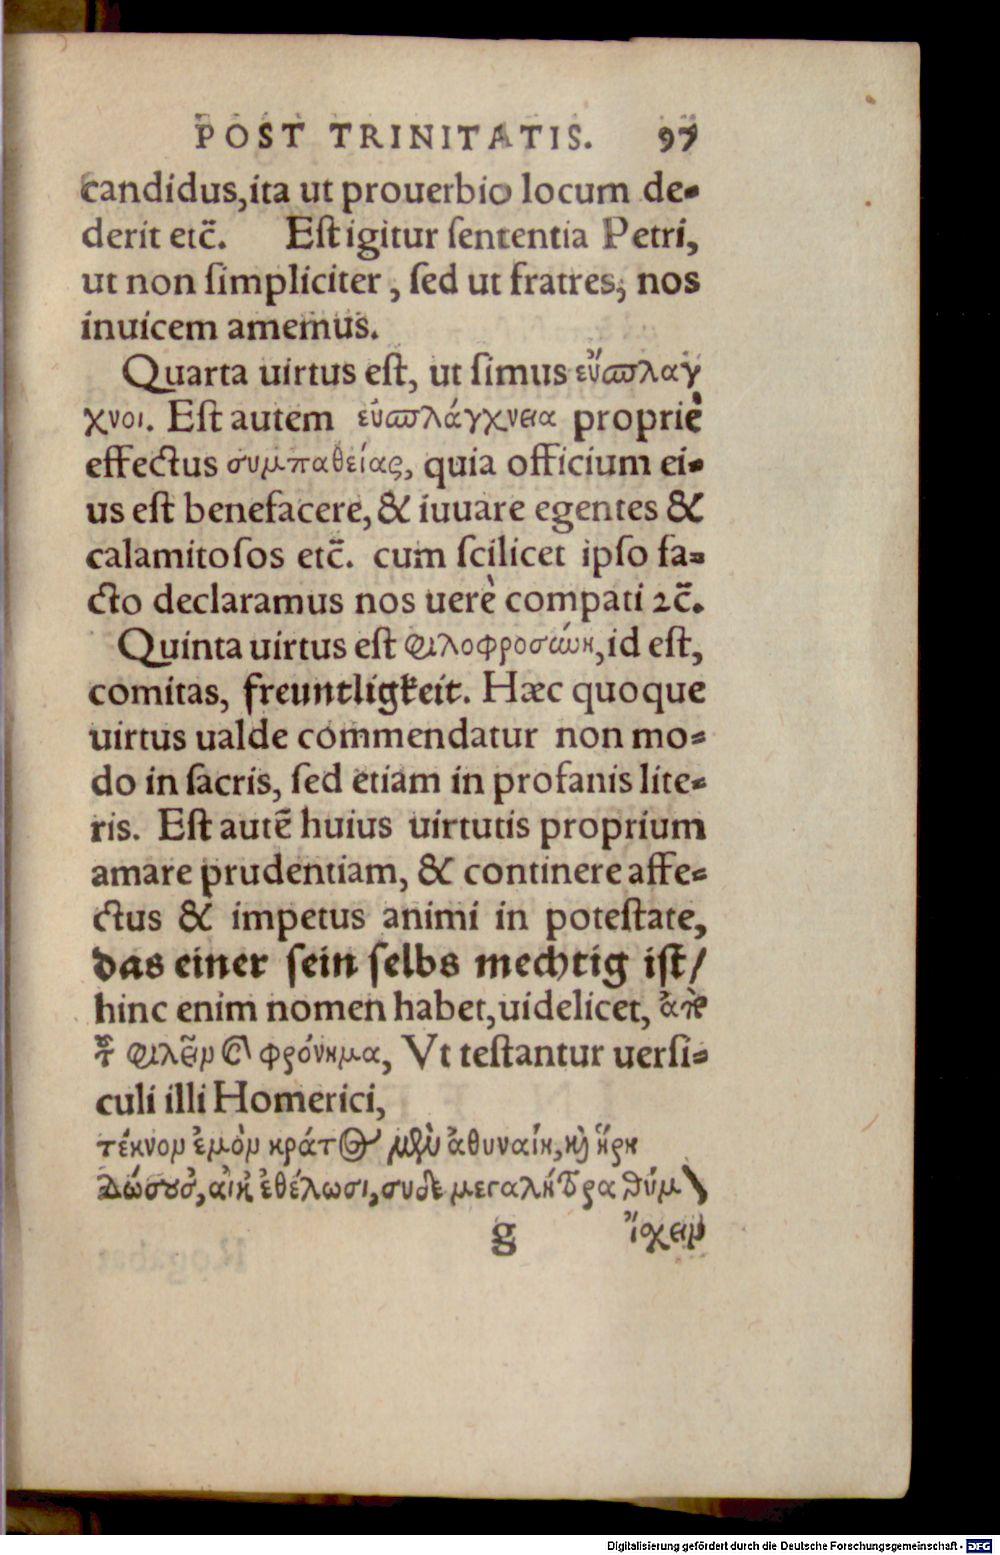 POST TRINITATIS. 97
candidus, ita ut prouerbio locum de-
derit etc̃. Est igitur sententia Petri,
ut non simpliciter, sed ut fratres, nos
inuicem amemus.
Quarta uirtus est, ut simus εὔσπλαγ
χνοι. Est autem εὐσπλάγχνεια propriè
effectus συμπαθείας, quia officium ei-
us est benefacere, & iuuare egentes &
calamitosos etc̃. cum scilicet ipso fa-
cto declaramus nos uerè compati ⁊c̃.
Quinta uirtus est φιλοφροσύνη, id est,
comitas, freuntligkeit. Hæc quoque
uirtus ualde commendatur non mo-
do in sacris, sed etiam in profanis lite-
ris. Est autẽ huius uirtutis proprium
amare prudentiam, & continere affe-
ctus & impetus animi in potestate,
das einer sein selbs mechtig ist/
hinc enim nomen habet, uidelicet, ἀπὸ
τοῦ φιλεῖν τὸ φρόνημα, Vt testantur uersi-
culi illi Homerici,
τέκνον ἐμὸν κράτος μὲν ἀθηναίη, καὶ ἥρη
Δώσουσ', αἴκ' ἐθέλωσι, σὺ δὲ μεγαλήτορα θύμὸν
g ἴσχειν
Digitalisierung gefördert durch die Deutsche Forschungsgemeinschaft - DFG